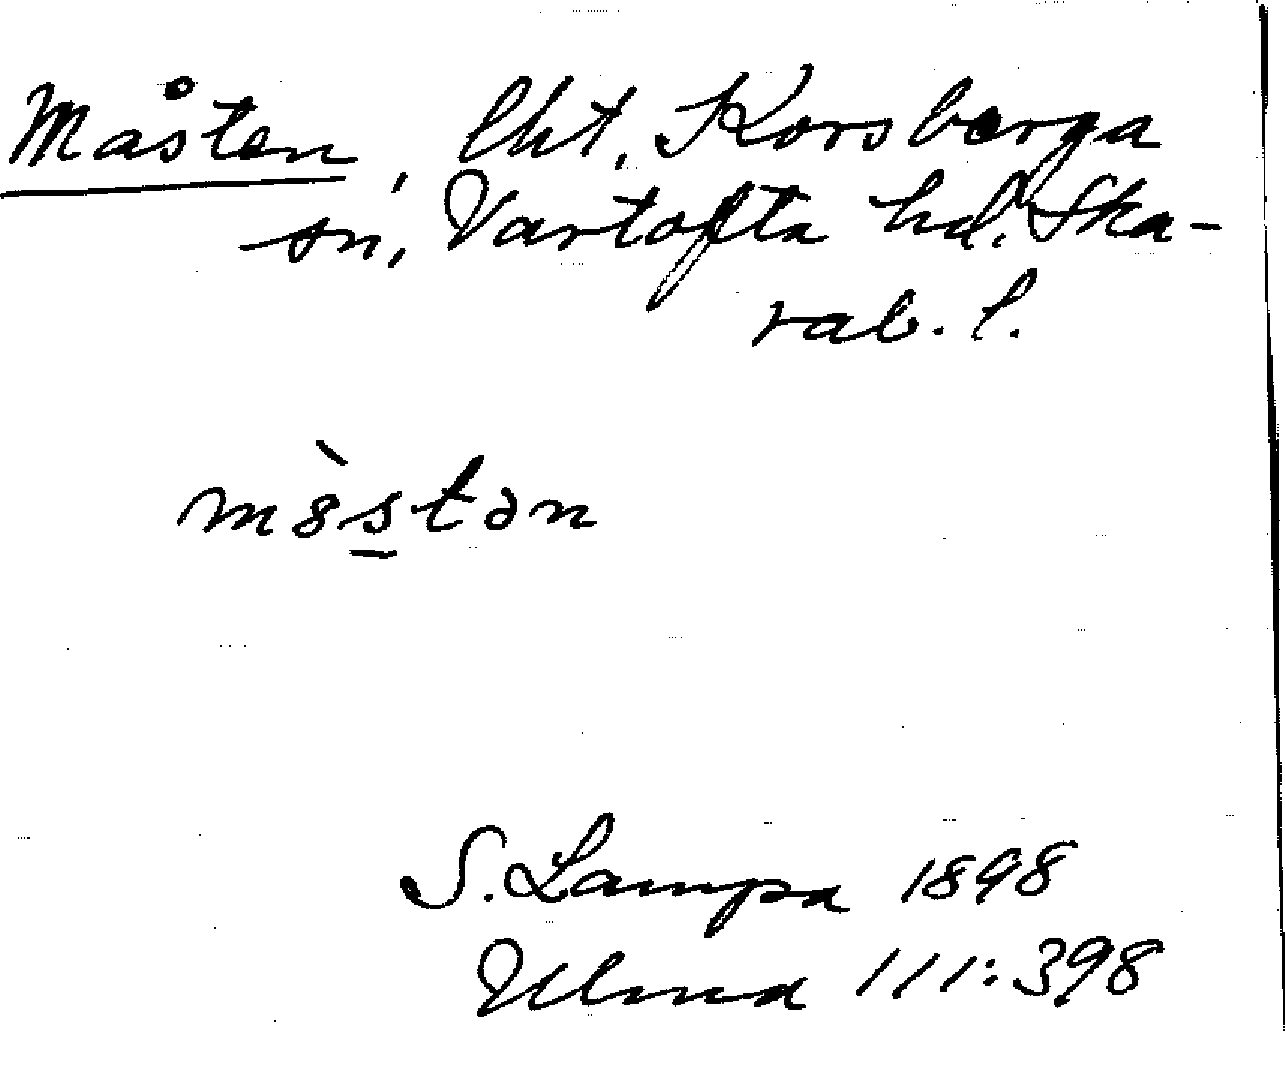 Måsten, lht, Korsberga
sn, Vartofta hd. Ska-
rab. l.
mò̀stən
S. Lampa 1898
Ulma 111:398